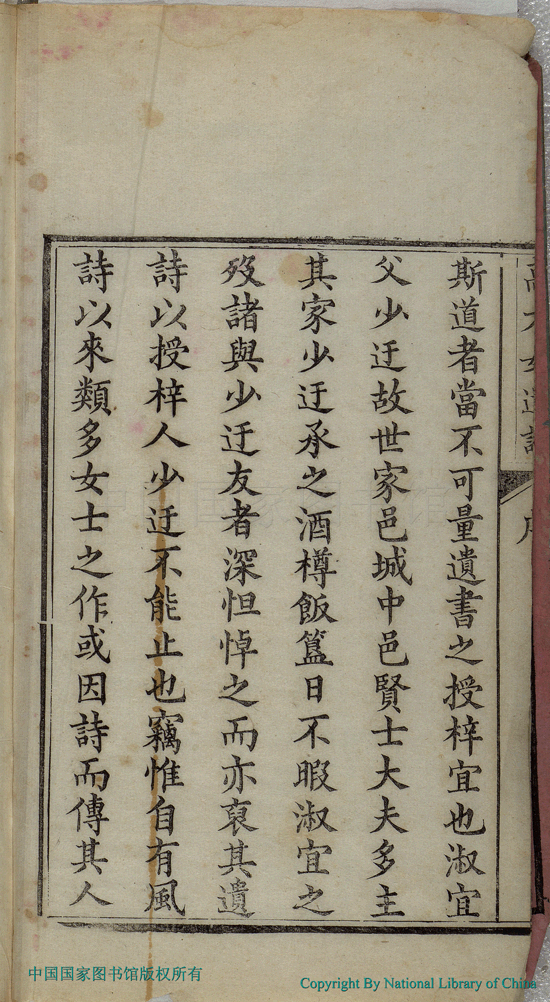 斯道者當不可量遺書之授梓宜也淑宜
父少迂故世家邑城中邑賢士大夫多主
其家少迂承之酒樽飯簋日不暇淑宜之
歿諸與少迂友者深怛悼之而亦裒其遺
詩以授梓人少迂不能止也竊惟自有風
詩以來類多女士之作或因詩而傳其人
中国国家图书馆版权所有
Copyright By National Library of China